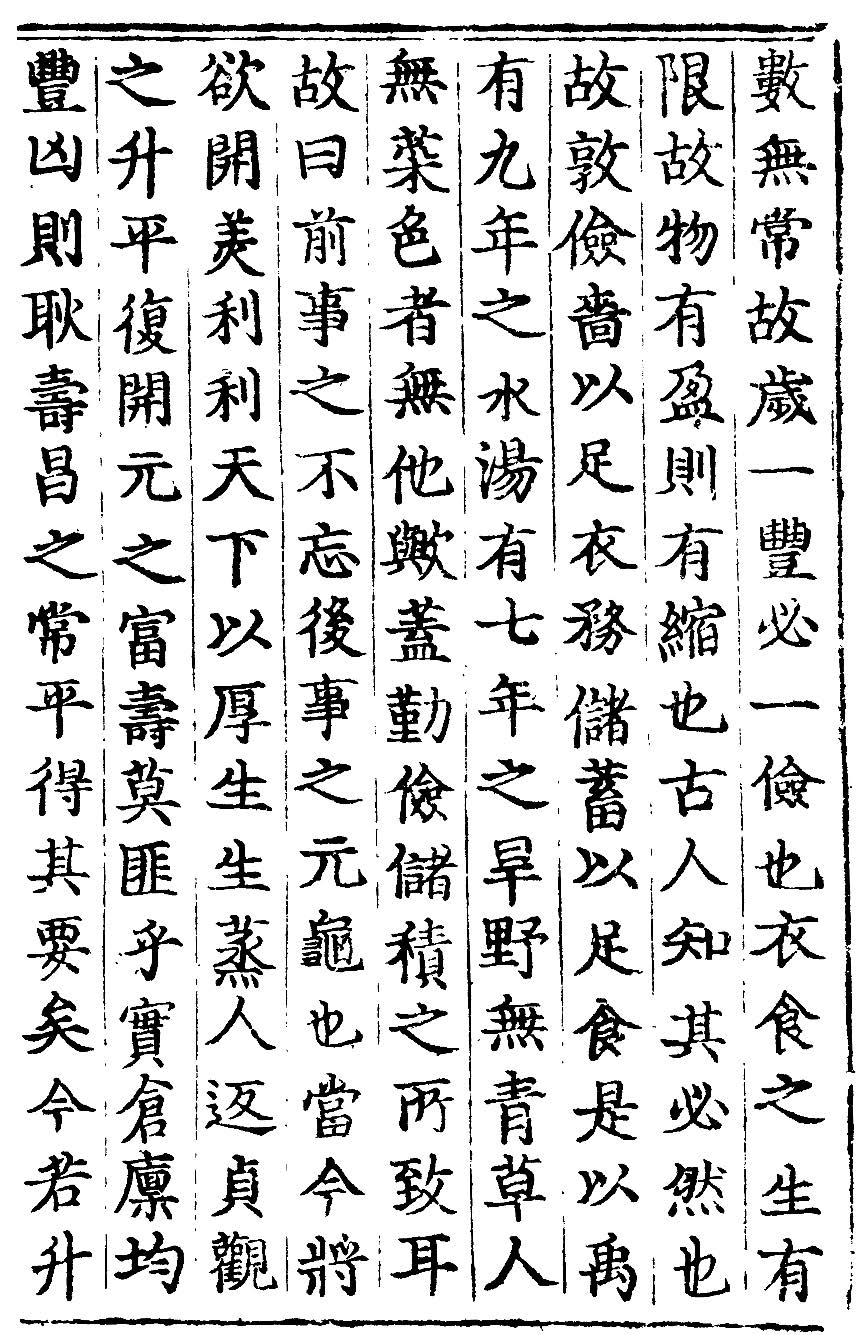 數無常故歲一豐必一儉也衣食之生有
限故物有盈則有縮也古人知其必然也
故敦儉嗇以足衣務儲蓄以足食是以禹
有九年之水湯有七年之旱野無青草人
無菜色者無他歟蓋勤儉儲積之所致耳
故曰前事之不忘後事之元龜也當今將
欲開美利利天下以厚生生蒸人返貞觀
之升平復開元之富壽莫匪乎實倉廪均
豐凶則耿壽昌之常平得其要矣今若升